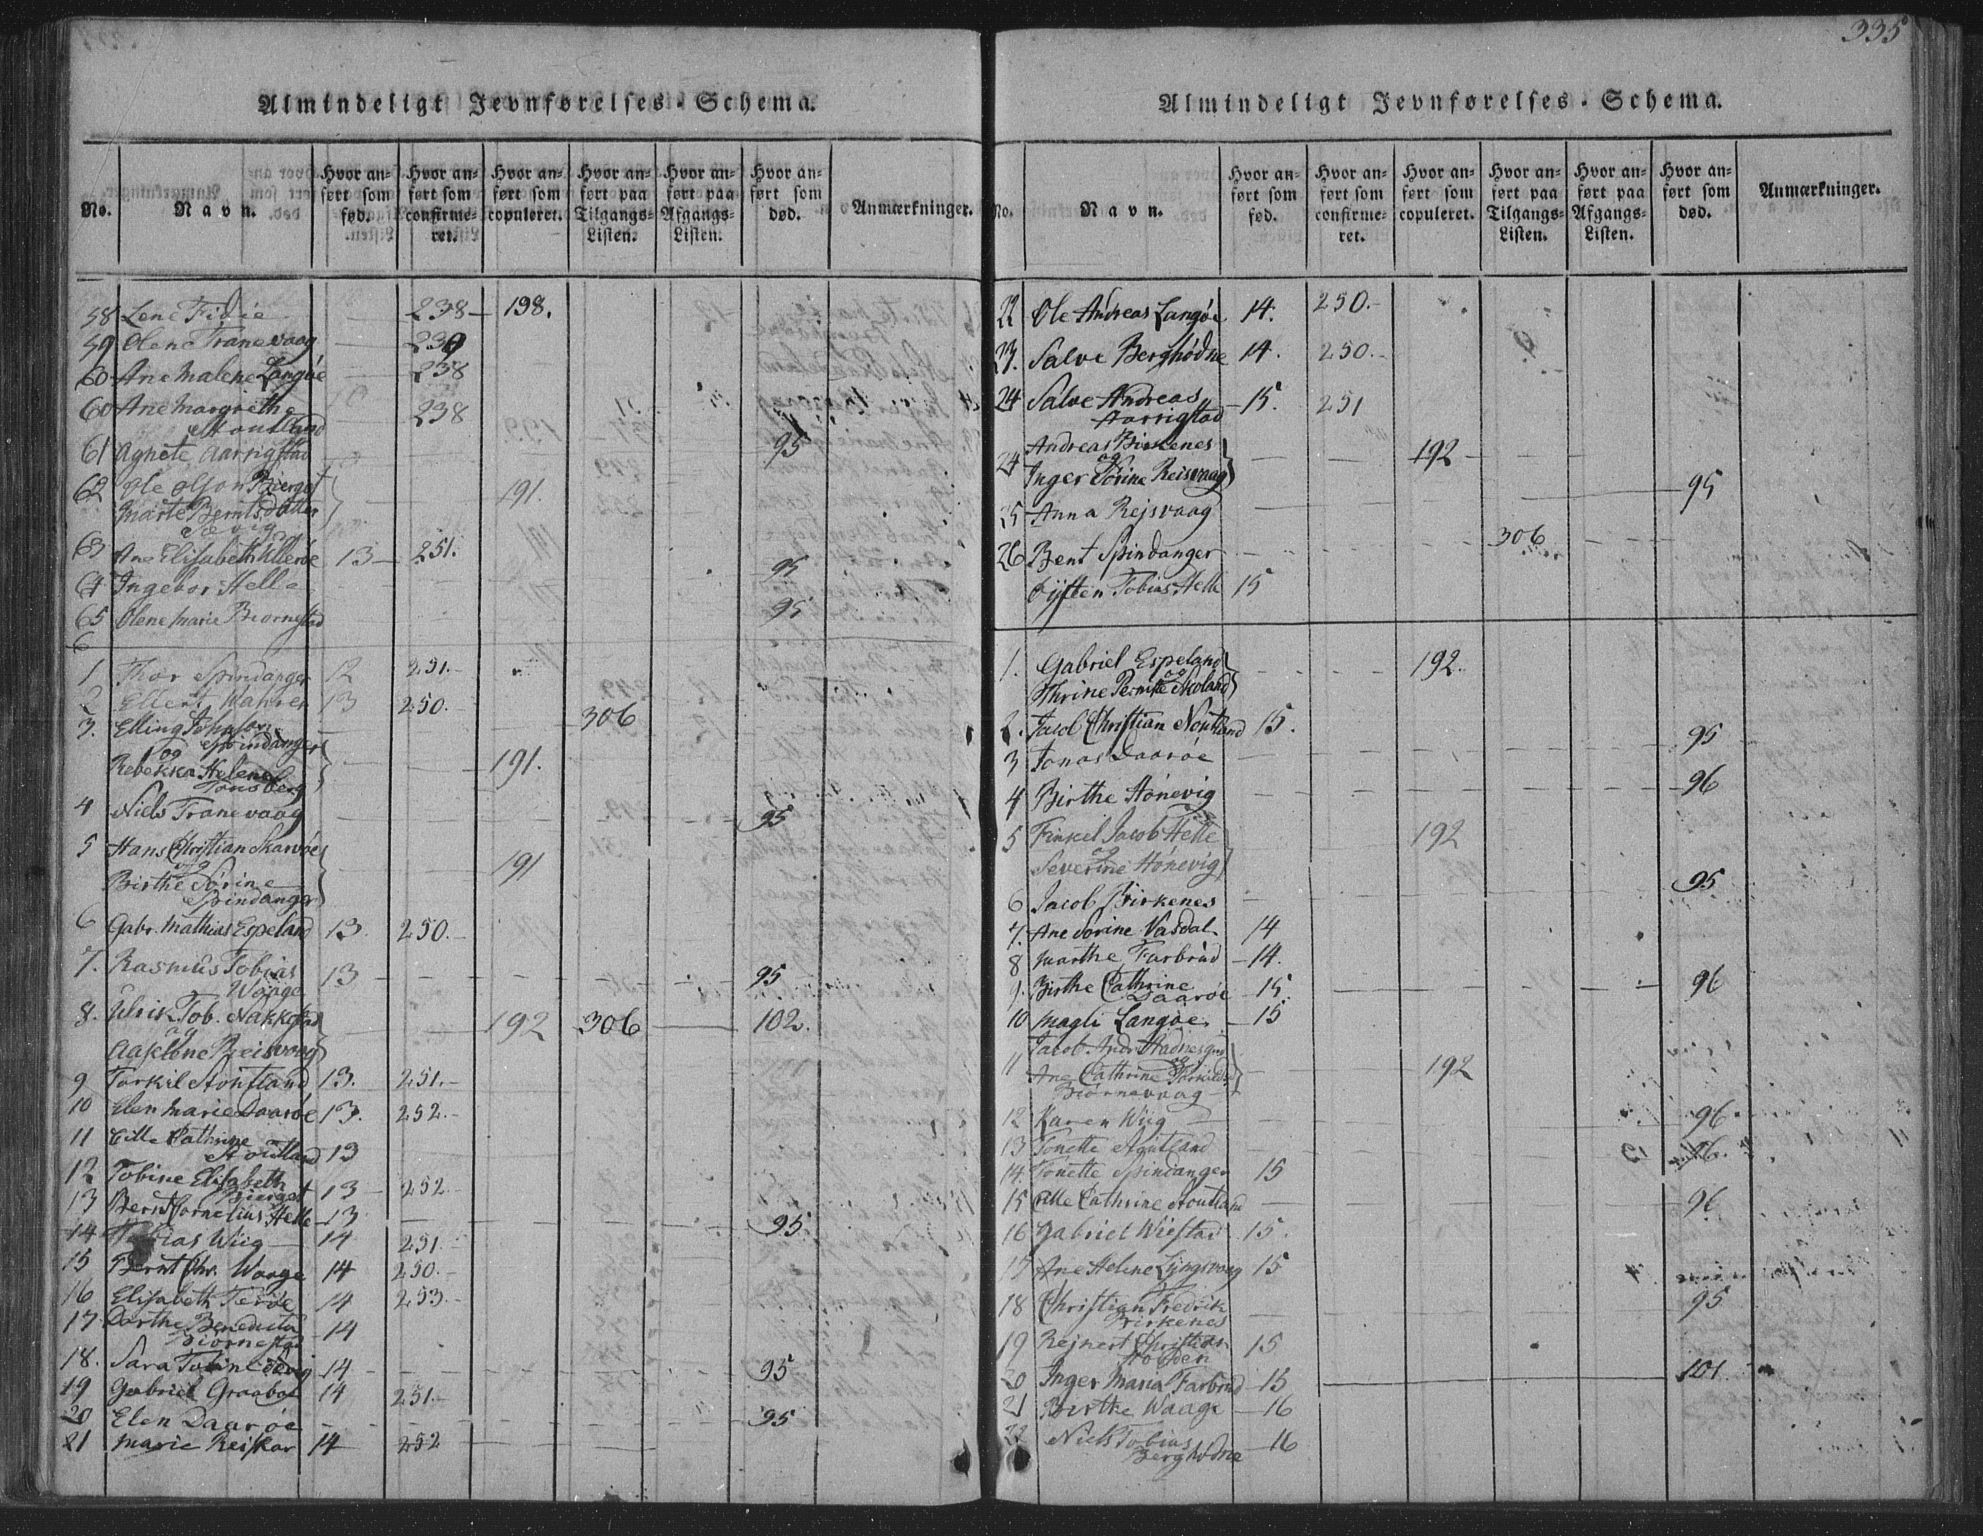 335
Almindeligt Jevnførelses-Schema.
No. Navn. Hvor anført som fød. Hvor anført som confirmeret. Hvor anført som copuleret. Hvor anført paa Tilgangs-Listen. Hvor anført paa Afgangs-Listen. Hvor anført som død. Anmærkninger.
58 Lene Fidie 238 198.
59 Olene Tranevaag 239
60 Ane Malene Langøe 238
60 Ane Margrethe Stoutland 238
61 Agnete Aarrigstad 95
62 Ole Olson Bierget
Marte Berntsdatter Sævig 191.
63 Ane Elisabeth Ullerøe 13 251.
64 Ingebor Helle 95
65 Olene Marie Biornestad 95
6
1 Thor Spindanger 12 251.
2 Ellert Wahrer 13 250.
3. Elling Johnson Spindanger 306
og
Rebekka Helene Tonsberg 191.
4 Niels Tranevaag 95
5 Hans Christian Skarvøe
og
Birthe Sørine Spindanger 191
6 Gabr. Mathias Espeland 13. 250.
7. Rasmus Tobias Waage 13 95
8. Ulrik Tob. Nakkestad 192 306 102.
og
Aaselene Reisvaag
9 Torkil Stoutland 13. 251.
10 Elen Marie Daarøe 13. 252.
11 Cille Cathrine Stoutland 13
12 Tobine Elisabeth Bierget 13 252
13 Bernt Cornelius Helle 13 95
14 Tobias Wiig 14 251.
15 Bernt Chr. Waage 14 250.
16 Elisabeth Terøe 14 253.
17 Dorthe Benedicta Biornestad 14
18. Sara Tobine Sævig 14 95
19 Gabriel Graabøl 14 251.
20 Elen Daarøe 95
21 Marie Reiskar 14 252
Almindeligt Jevnførelses-Schema.
No. Navn. Hvor anført som fød. Hvor anført som confirmeret. Hvor anført som copuleret. Hvor anført paa Tilgangs-Listen. Hvor anført paa Afgangs-Listen. Hvor anført som død. Anmærkninger.
22 Ole Andreas Langøe 14. 250.
23. Salve Berghødne 14. 250.
24 Salve Andreas Aarrigstad 15. 251
24 Andreas Birkenes
og
Inger Sørine Reisvaag 192
25 Anna Rejsvaag 95
26 Bent Spindanger 306
Øysten Tobias Helle 15
1. Gabriel Espeland
og
Thrine Pernille Skoland 192.
2. Jacob Christian Noutland 15.
3 Jonas Daarøe 95
4 Birthe Hønevig 96
5 Finkel Jacob Helle
og
Severine Hønevig 192
6 Jacob Birkenes 95
7. Ane Sørine Vasdal 14
8 Marthe Farbrød 14.
9. Birthe Cathrine Daarøe 15. 96
10 Magli Langøe 15
11 Jacob Andr
og
Ane Cathrine Biørnevaag 192
12 Karen Wiig 96
13 Tonette Stoutland 96.
14. Tonette Spindanger 15
15 Cille Cathrine Stoutland 96
16 Gabriel Wiestad 15.
17 Ane Helene Lyngsvaag 15
18 Christian Fredrik Birkenes 95
19 Rejnert Christian Stobden 15
20 Inger Maria Farbrød 15 101
21 Birthe Waage 16
22 Niels Tobias Berghødne 16